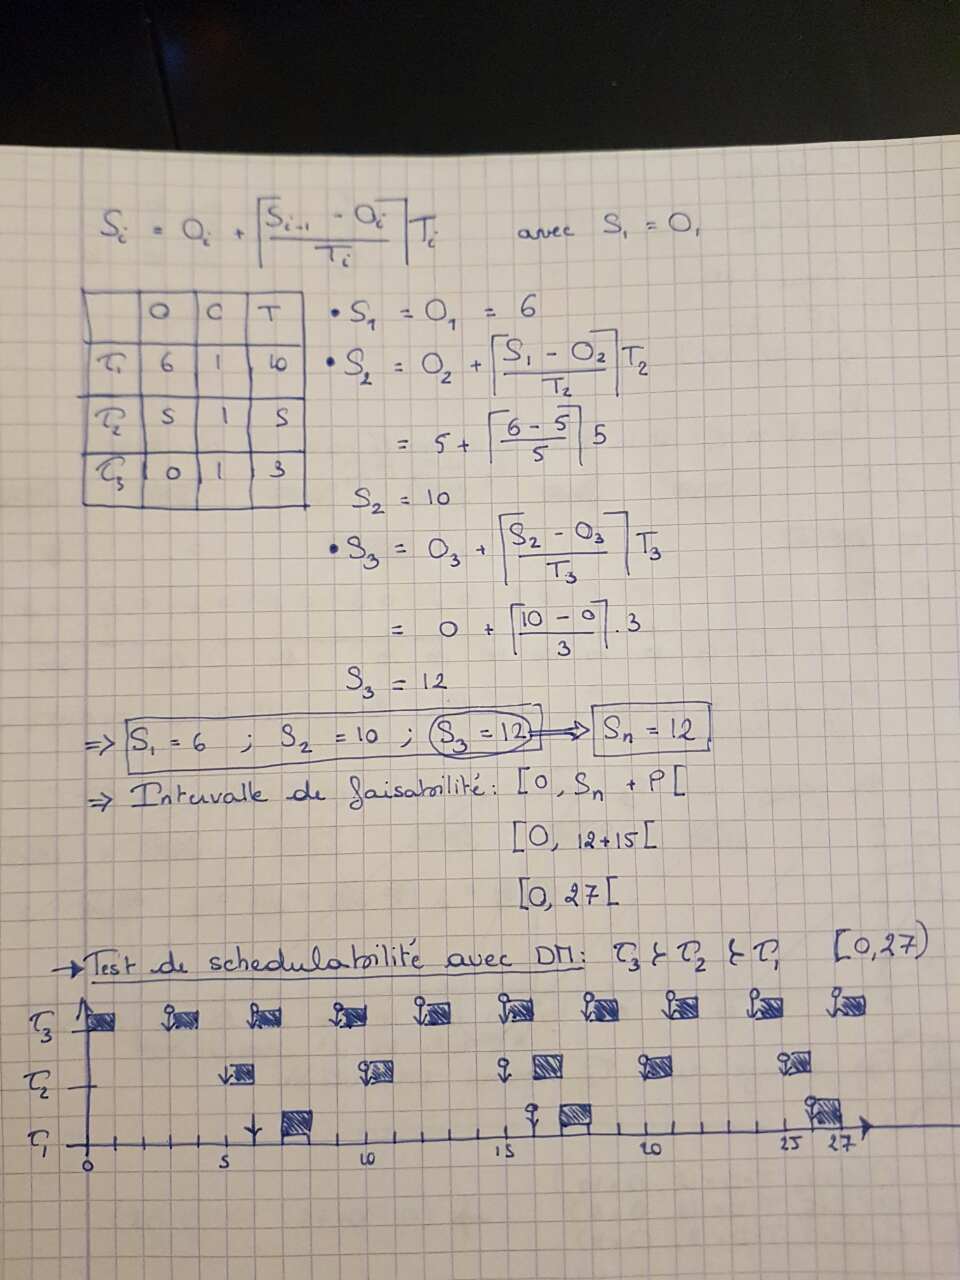 Sᵢ = Oᵢ + ⌈(Sᵢ₋₁ - Oᵢ)/Tᵢ⌉ Tᵢ avec S₁ = O₁
O C T
τ₁ 6 1 10
τ₂ 5 1 5
τ₃ 0 1 3
• S₁ = O₁ = 6
• S₂ = O₂ + ⌈(S₁ - O₂)/T₂⌉ T₂
= 5 + ⌈(6 - 5)/5⌉ 5
S₂ = 10
• S₃ = O₃ + ⌈(S₂ - O₃)/T₃⌉ T₃
= 0 + ⌈(10 - 0)/3⌉ . 3
S₃ = 12
⇒ S₁ = 6 ; S₂ = 10 ; S₃ = 12 ⇒ Sₙ = 12
⇒ Intervalle de faisabilité : [0, Sₙ + P[
[0, 12+15[
[0, 27[
→ Test de schedulabilité avec DM : τ₃ ≻ τ₂ ≻ τ₁ [0,27)
τ₃
τ₂
τ₁
0 5 10 15 20 25 27